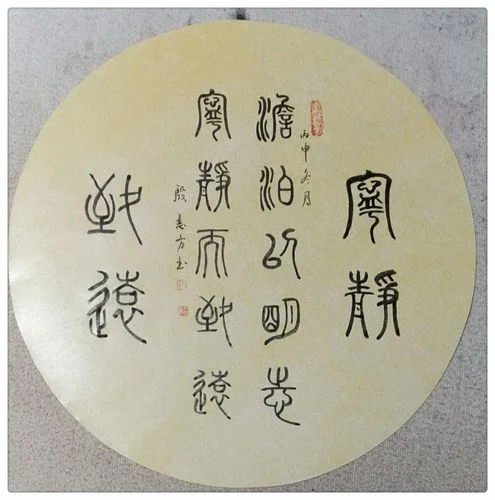 寧靜
丙申冬月
澹泊以明志
寧靜而致遠
殷志方书
致遠